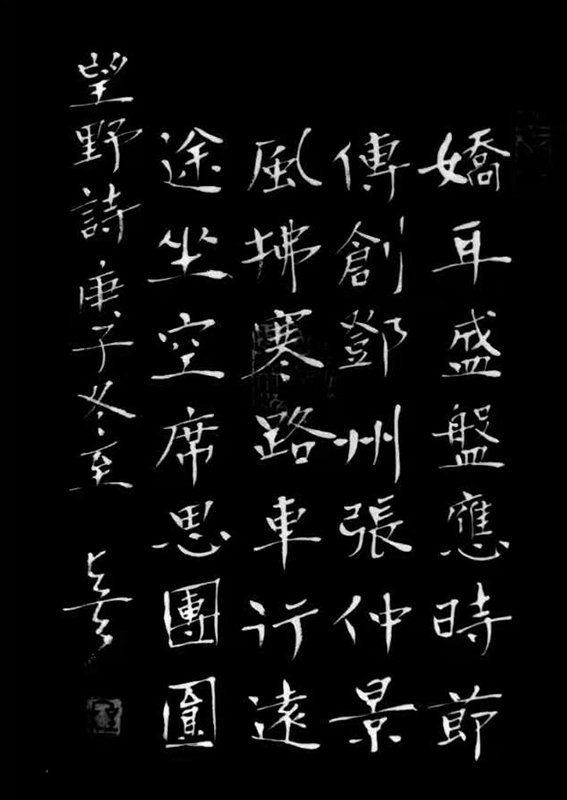 嬌耳盛盤應時節
傳創鄧州張仲景
風拂寒路車行遠
途坐空席思團圓
望野詩庚子冬至